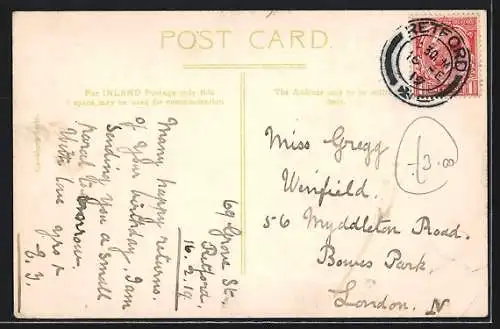 POST CARD.
For INLAND Postage only this
space may be used for communication
The Address only to be
here.
RETFORD
69 Grove St.
Retford.
16.2.19
Many happy returns
of your birthday. I am
Sending you a small
parcel tomorrow.
With love
Miss Gregg
Winfield.
56 Myddleton Road.
Bowes Park.
London. N
£3.00